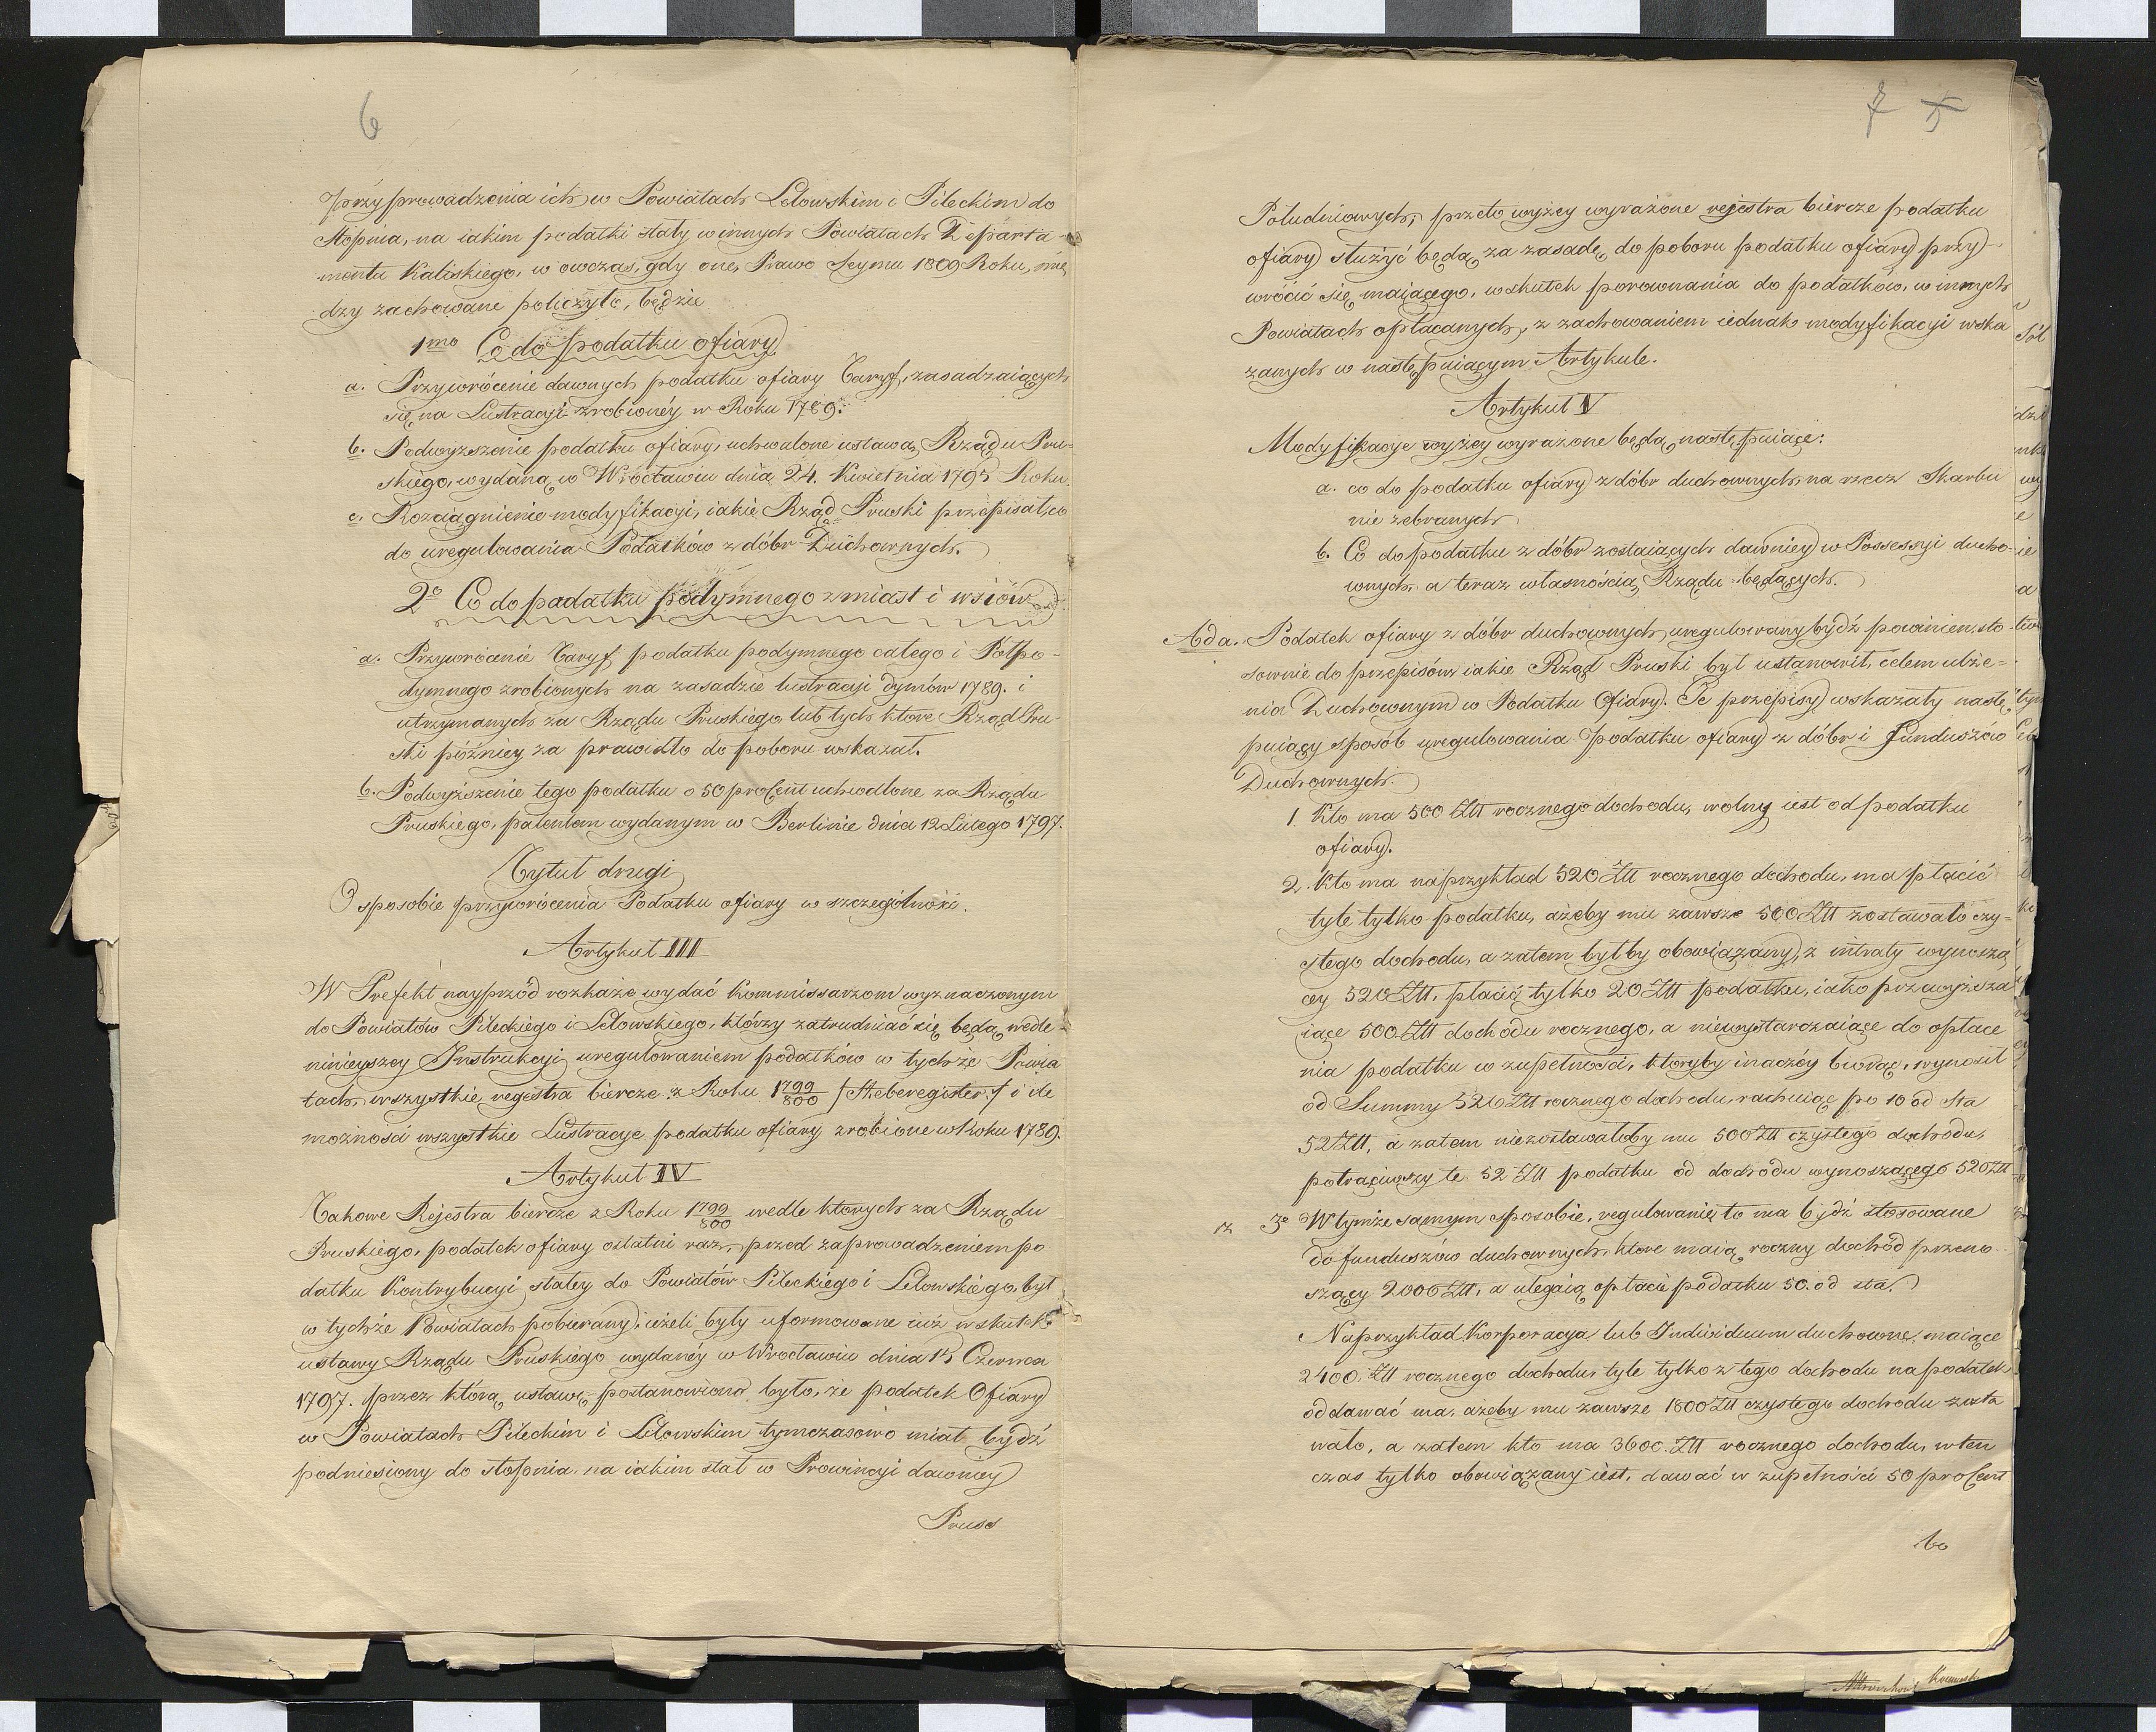 6
przyprowadzenia ich w Powiatach Lelowskim i Pileckim do
stopnia, na iakim podatki stały w innych Powiatach Departa-
mentu Kaliskiego, w owczas, gdy one, Prawo Seymu 1809 Roku, mię
dzy zachowane policzyło, będzie
1mo Co do podatku ofiary
a. Przywrócenie dawnych podatku ofiary Taryf, zasadzaiących
się na Lustracyi zrobionéy w Roku 1789.
b. Podwyższenie podatku ofiary, uchwalone ustawą Rządu Pru-
skiego, wydaną w Wrocławiu dnia 24. Kwietnia 1795 Roku.
c. Rozciągnienie modyfikacyi, iakie Rząd Pruski przepisał, co
do uregulowania Podatków z dóbr Duchownych.
2o Co do podatku podymnego z miast i wsiów
a. Przywrócenie Taryf podatku podymnego całego i Półpo-
dymnego zrobionych na zasadzie lustracyi dymów 1789. i
utrzymanych za Rządu Pruskiego lub tych które Rząd Pru-
ski późniey za prawidło do poboru wskazał.
b. Podwyższenie tego podatku o 50 procent uchwalone za Rządu
Pruskiego, patentem wydanym w Berlinie dnia 12 Lutego 1797.
Tytuł drugi
O sposobie przywrócenia Podatku ofiary w szczególności.
Artykuł III
W Prefekt nayprzód rozkaże wydać Kommissarzom wyznaczonym
do Powiatów Pileckiego i Lelowskiego, którzy zatrudniać się będą wedle
ninieyszey Instrukcyi uregulowaniem podatków w tychże Powia
tach, wszystkie regestra biercze z Roku 1799/800 /Heberegister/ i ile
możności wszystkie Lustracye podatku ofiary zrobione w Roku 1789.
Artykuł IV
Takowe Rejestra biercze z Roku 1799/800 wedle których za Rządu
Pruskiego, podatek ofiary ostatni raz, przed zaprowadzeniem po
datku Kontrybucyi stałey do Powiatów Pileckiego i Lelowskiego, był
w tychże Powiatach pobierany, ieżeli były uformowane iuż w skutek
ustawy Rządu Pruskiego wydanéy w Wrocławiu dnia 15 Czerwca
1797. przez którą ustawę postanowiono było, że podatek Ofiary
w Powiatach Pileckim i Lelowskim tymczasowo miał bydź
podniesiony do stopnia, na iakim stał w Prowincyi dawniey
Pruss
7 5
Południowych, przeto wyżey wyrażone rejestra biercze podatku
ofiary służyć będą za zasadę, do poboru podatku ofiary przy-
wrócić się maiącego, w skutek porównania do podatków, w innych
Powiatach opłacanych, z zachowaniem iednak modyfikacyi wska
zanych w następuiącym Artykule.
Artykuł V
Modyfikacye wyżey wyrażone będą następuiące:
a. co do podatku ofiary z dóbr duchownych na rzecz Skarbu
nie zebranych
b. Co do podatku z dóbr zostaiących dawniey w Possessyi ducho-
wnych, a teraz własnością Rządu będących.
Ad a. Podatek ofiary z dóbr duchownych, uregulowany bydź powinien sto
sownie do przepisów iakie Rząd Pruski był ustanowił, celem ulże-
nia Duchownym w Podatku Ofiary. Te przepisy wskazały nastę-
puiący sposób uregulowania podatku ofiary z dóbr i Funduszów
Duchownych.
1. Kto ma 500 Złł rocznego dochodu, wolny iest od podatku
ofiary.
2. Kto ma naprzykład 520 Złł rocznego dochodu, ma płacić
tyle tylko podatku, ażeby mu zawsze 500 Złł zostawało czy-
stego dochodu, a zatem byłby obowiązany, z intraty wynoszą
cey 520 Złł, płacić tylko 20 Złł podatku, iako przewyższa
iące 500 Złł dochodu rocznego, a niewystarczaiące do opłace
nia podatku w zupełności, któryby inaczéy biorąc, wynosił
od Summy 520 Złł rocznego dochodu, rachuiąc po 10 od Sta
52 Złł, a zatem niezostawałoby mu 500 Złł czystego dochodu,
potrąciwszy te 52 Złł podatku od dochodu wynoszącego 520 Złł
3o W tymże samym sposobie, regulowanie to ma bydź stosowane
do funduszów duchownych, które maią roczny dochód przeno-
szący 2000 Złł, a ulegaią opłacie podatku 50. od sta.
Naprzykład Korporacya lub Individuum duchowne, maiące
2400. Złł rocznego dochodu, tyle tylko z tego dochodu na podatek
oddawać ma, ażeby mu zawsze 1800 Złł czystego dochodu zosta
wało, a zatem kto ma 3600. Złł rocznego dochodu, wten
czas tylko obowiązany iest, dawać w zupełności 50 procent
bo